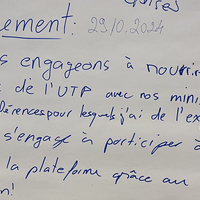 ement: 29.10.2024
s engageons à nourrir
de l'UTP avec nos mini
férences pour lesquels j'ai de l'ex
s'engage à participer à
la plateforme grâce au
n!